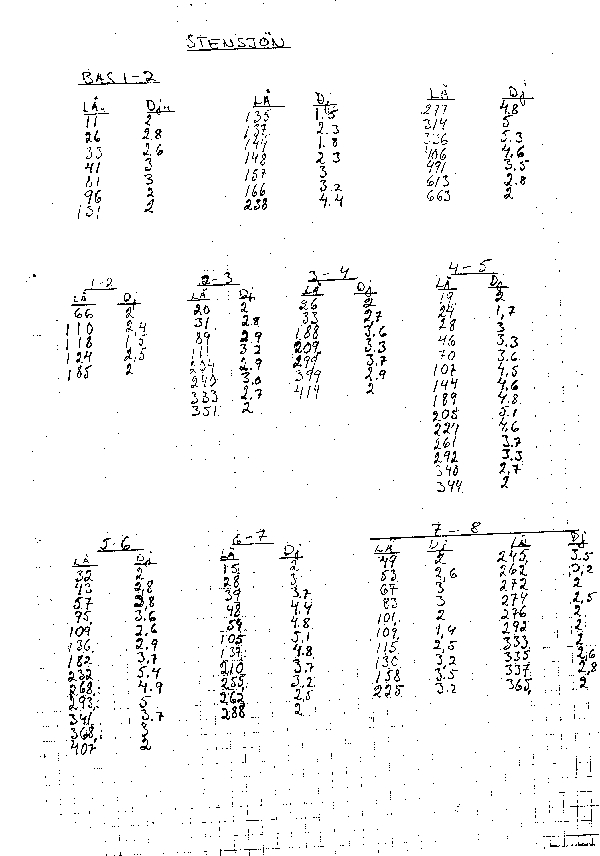 STENSJÖN
BAS 1-2
LÄ Dju
11 2
26 2.8
33 2.6
41 3
81 3
96 2
131 2
LÄ Dj
135 1.5
137 2.3
144 1.8
148 2.3
157 3
166 3.2
238 4.4
LÄ Dj
277 4.8
314 5
336 5.3
406 4.6
491 3.5
613 2.8
663 2
1-2
LÄ Dj
66 2
110 2.4
118 1.5
124 2.5
185 2
2-3
LÄ Dj
20 2
31 2.8
89 2.9
111 3.2
2.9
249 3.0
333 2.7
351 2
3-4
LÄ Dj
26 2
33 2.7
188 3.6
209 3.3
299 3.7
399 2.9
414 2
4-5
LÄ Dj
19 2
24 1,7
28 3
46 3.3
70 3.6
107 4,5
144 4,6
189 4.8
208 5.1
224 4.6
261 3.7
292 3.3
340 2,7
344 2
5-6
LÄ Dj
32 2
43 2,8
57 2,8
95 3.6
109 2.6
136 2.9
182 3.7
232 5.4
268 4.9
293 5
341 3.7
368 3
407 2
6-7
LÄ Dj
15 2
28 3
39 3.7
48 4.4
59 4.8
105 5.1
139 4.8
210 3.7
255 3.2
262 2.5
288 2
7-8
LÄ Dj
49 2
53 2,6
67 3
83 3
101 2
109 1,4
115 2,5
130 3.2
158 3.5
225 3.2
LÄ Dj
245 3.5
262 3,2
272 2
274 2,5
276 2
292 2
333 2
335 2,6
337 2,8
365 2